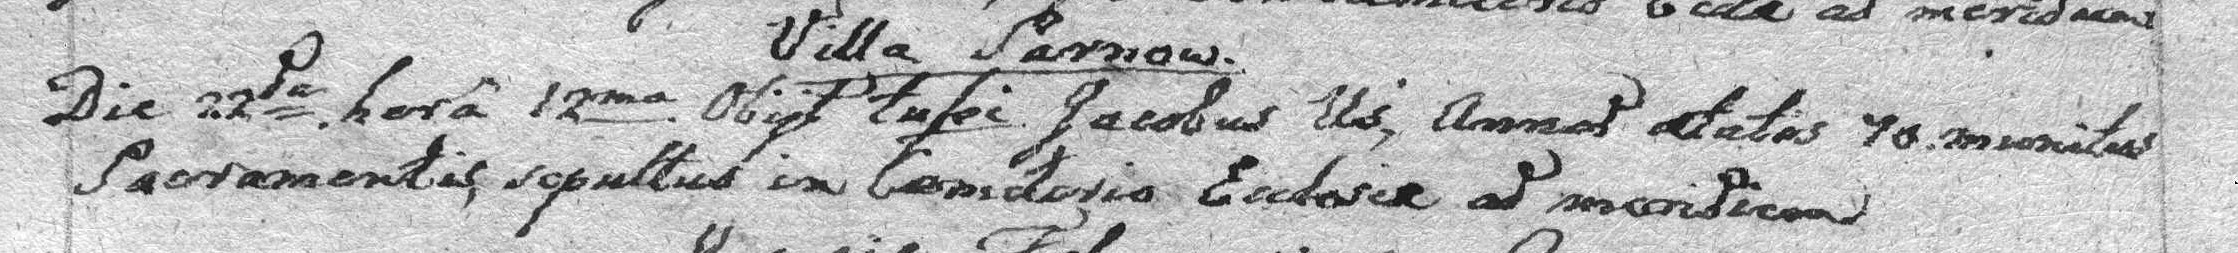 ad meridiem
Villa Parnow.
Die 22da hora 12ma Obijt tussi Jacobus Uś, Annos ætatis 70. munitus
Sacramentis, sepultus in Cœmeterio Ecclesiæ ad meridiem